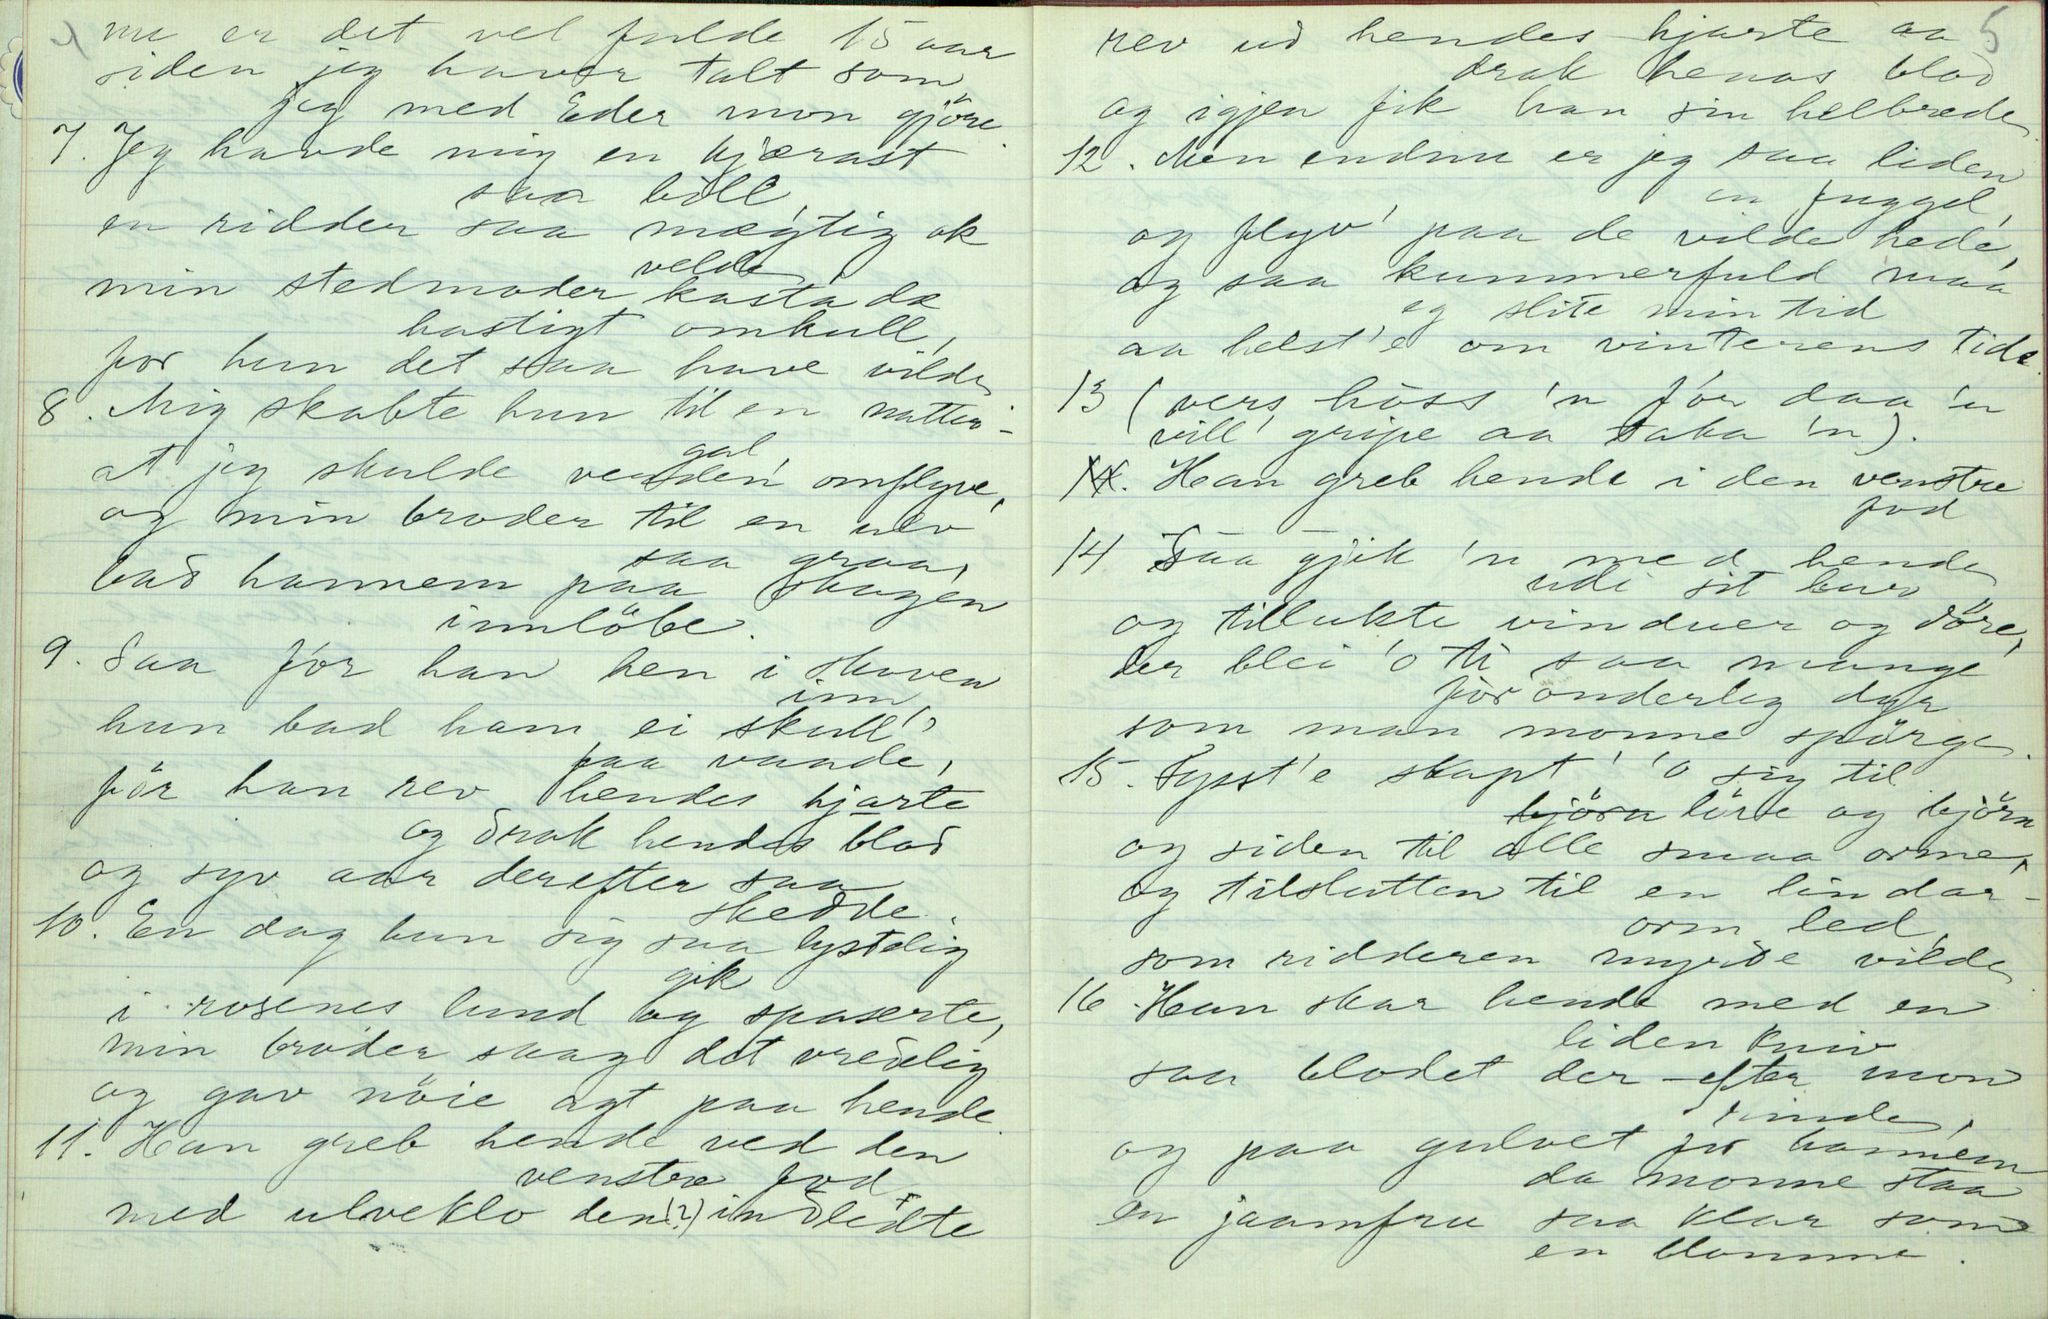 nu er det vel fulde 15 aar
siden jeg haver talt som
jeg med Eder mon gjöre.
7. Jeg havde mig en kjærast
saa bold,
en ridder saa mægtig ok
velde,
min stedmoder kasta da
hastigt omkull,
for hun det saa have vilde
8. Mig skabte hun til en natter-
gal,
at jeg skulde verden omflyve,
og min broder til en ulv
saa graa,
bad hannem paa skogen
innlöbe.
9. Saa fór han hen i skoven
inn,
hun bad ham ei skull'
paa vande,
för han rev hendes hjarte
og drak hendes blod
og syv aar derefter saa
skedde.
10. En dag hun sig saa lystelig
gik
i rosenes lund og spaserte,
min broder saag det vredelig
og gav nöie agt paa hende.
11. Han greb hende ved den
venstre fod
med ulveklo den (?) indledte
5
rev ud hendes hjarte aa
drak henas blod
og igjen fik han sin helbrede.
12. Men endnu er jeg saa liden
en fuggel,
og flyv' paa de vilde hede,
og saa kummerfuld maa
eg slite min tid
aa helst'e om vinterens tide.
13 (vers höss 'n fór daa 'n
vill' gripe aa taka 'n).
14. Han greb hende i den venstre
fod
14 Saa gjik 'n med hende
udi sit bur
og tillukte vinduer og döre,
der blei 'o ti saa mange
for onderleg dyr
som man monne spörge.
15. Fysst'e skapt' 'o sig til
björn löve og björn
og siden til alle smaa orme,
og tilslutten til en lindar-
orm led,
som ridderen myrde vilde
16 Han skar hende med en
liden kniv
saa blodet der efter mon
rinde,
og paa gulvet for hannem
da monne staa
en jaamfru saa klar som
en blomme.